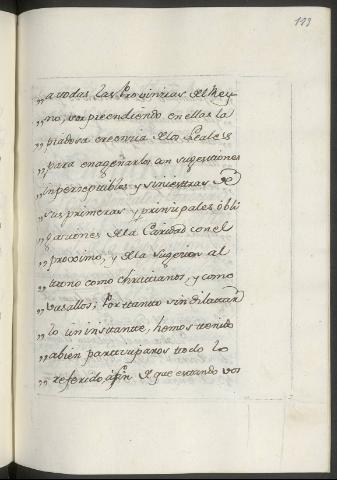 193
„ a todas las Provincias del Rey-
„ no, sorpreendiendo en ellas la
„ piadosa creencia de los Reales
„ para enagenarlos con sugestiones
„ imperceptibles y siniestras de
„ sus primeras y principales obli
„ gaciones de la Caridad con el
„ proximo, y de la sugecion al
„ trono como christianos, y como
„ vasallos; Por tanto sin dilatar
„ lo un instante, hemos tenido
„ a bien participaros todo lo
„ referido, afin de que estando vos